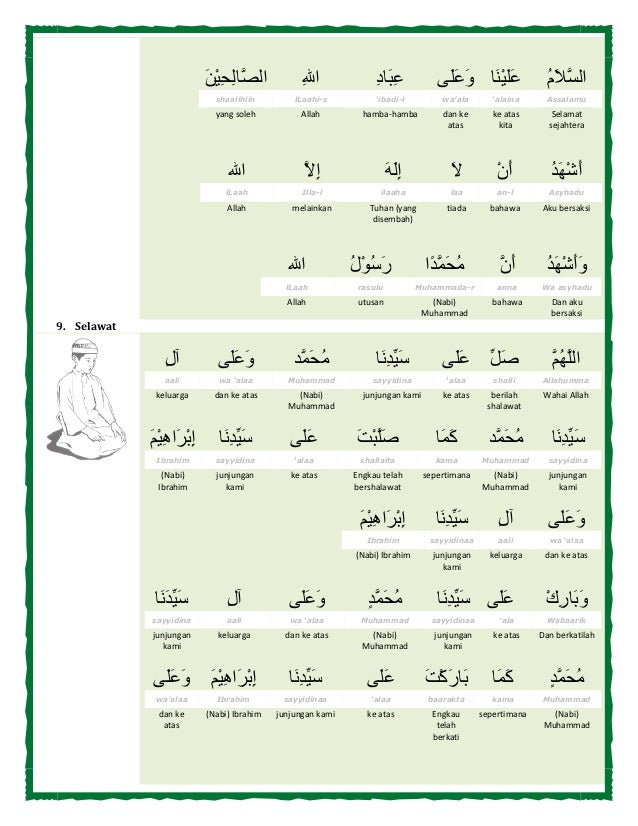 السَّلاَمُ عَلَيْنَا وَعَلَى عِبَادِ اللهِ الصَّالِحِيْنَ
Assalamu 'alaina wa'ala 'ibadi-l lLaahi-s shaalihiin
Selamat sejahtera ke atas kita dan ke atas hamba-hamba Allah yang soleh
أَشْهَدُ أَنْ لاَ إِلَهَ إِلاَّ الله
Asyhadu an-l laa ilaaha Illa-l lLaah
Aku bersaksi bahawa tiada Tuhan (yang disembah) melainkan Allah
وَأَشْهَدُ أَنَّ مُحَمَّدًا رَسُوْلُ الله
Wa asyhadu anna Muhammada-r rasulu lLaah
Dan aku bersaksi bahawa (Nabi) Muhammad utusan Allah
9. Selawat
اللَّهُمَّ صَلِّ عَلَى سَيِّدِنَا مُحَمَّد وَعَلَى آلِ
Allahumma shalli 'alaa sayyidina Muhammad wa 'alaa aali
Wahai Allah berilah shalawat ke atas junjungan kami (Nabi) Muhammad dan ke atas keluarga
سَيِّدِنَا مُحَمَّد كَمَا صَلَّبْتَ عَلَى سَيِّدِنَا إِبْرَاهِيْمَ
sayyidina Muhammad kama shallaita 'alaa sayyidina Ibrahim
junjungan kami (Nabi) Muhammad sepertimana Engkau telah bershalawat ke atas junjungan kami (Nabi) Ibrahim
وَعَلَى آلِ سَيِّدِنَا إِبْرَاهِيْمَ
wa 'alaa aali sayyidinaa Ibrahim
dan ke atas keluarga junjungan kami (Nabi) Ibrahim
وَبَارِكْ عَلَى سَيِّدِنَا مُحَمَّدٍ وَعَلَى آلِ سَيِّدَنَا
Wabaarik 'ala sayyidinaa Muhammad wa 'alaa aali sayyidina
Dan berkatilah ke atas junjungan kami (Nabi) Muhammad dan ke atas keluarga junjungan kami
مُحَمَّدٍ كَمَا بَارَكْتَ عَلَى سَيِّدِنَا إِبْرَاهِيْمَ وَعَلَى
Muhammad kama baarakta 'alaa sayyidinaa Ibrahim wa'alaa
(Nabi) Muhammad sepertimana Engkau telah berkati ke atas junjungan kami (Nabi) Ibrahim dan ke atas